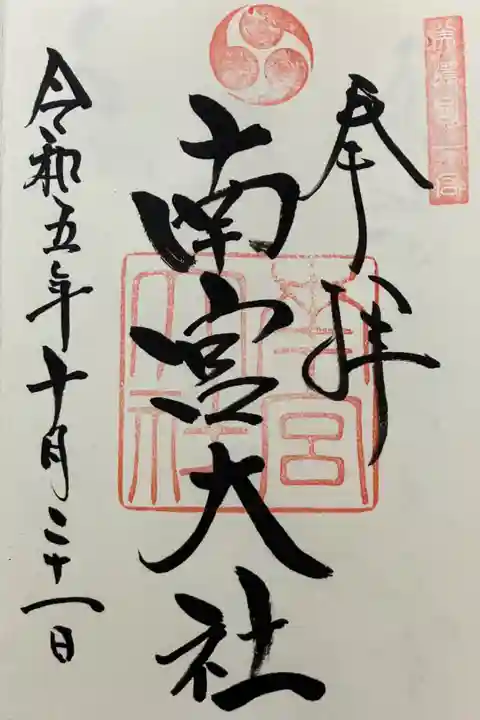 美濃國一宮
奉拝
南宮大社
南宮大社
令和五年十月二十一日